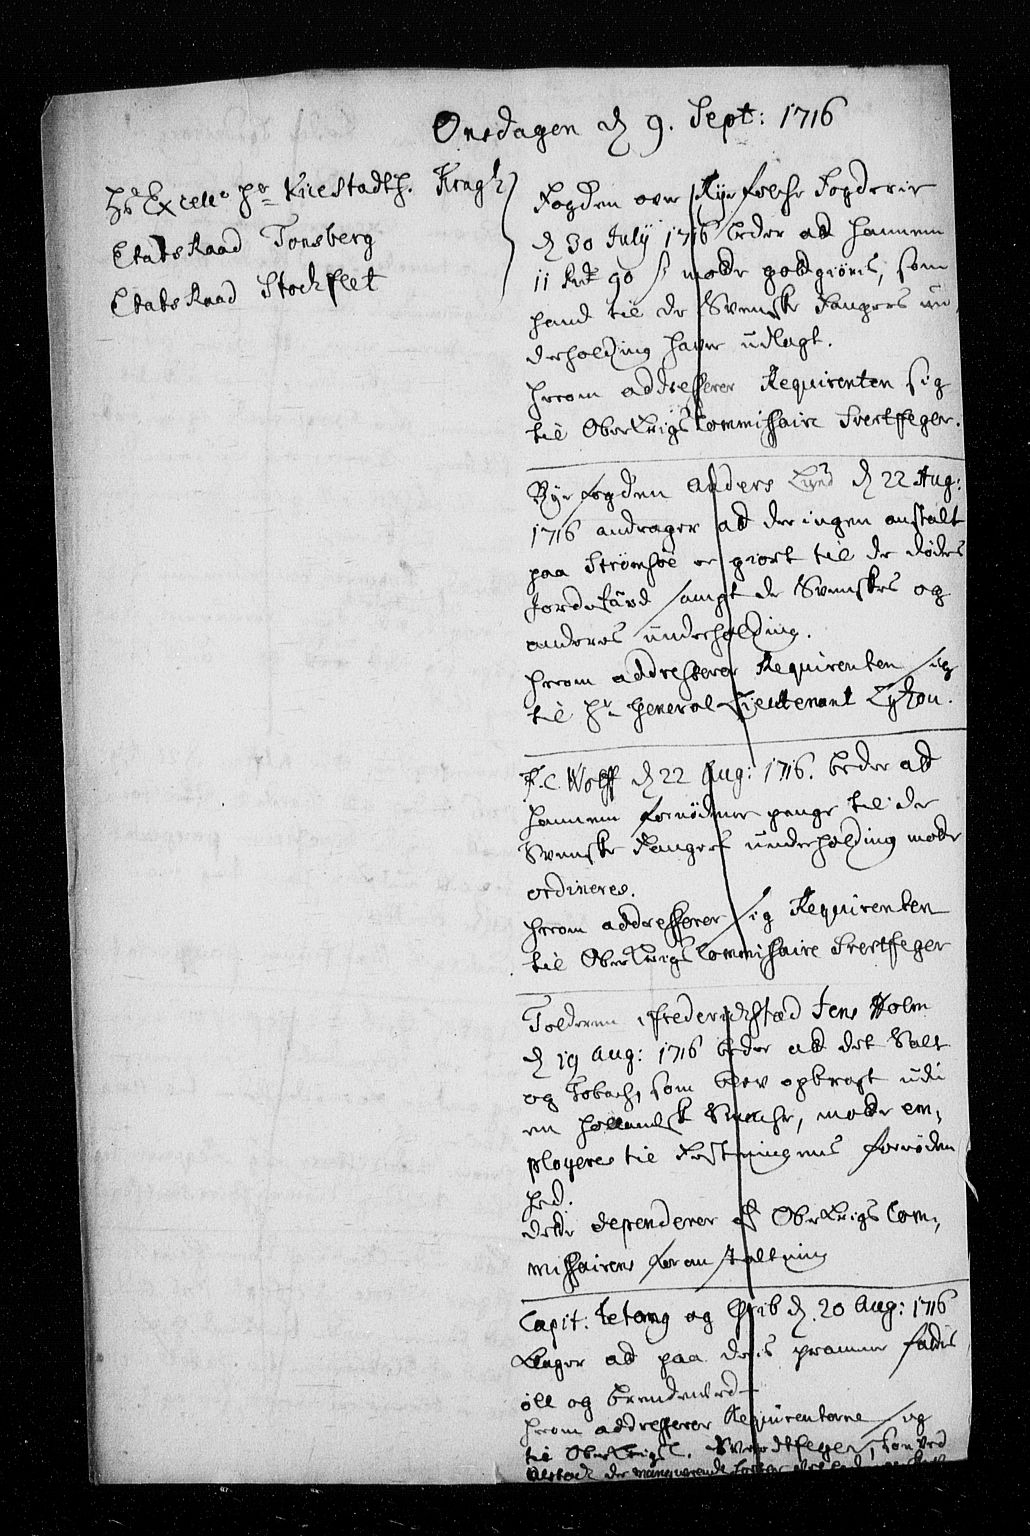 Onsdagen d 9. Sept: 1716
Hs Excell: Hr ViceStadth. Kragh
EtatsRaad Tonsberg
EtatsRaad Stochflet
Fogden over Rye folche Fogderie
d 30 July 1716 beder ad hannem
11 Rdr 90 s maatte godgiøris, som
hand til de Svenske Fangers un
derholding haver udlagt.
herom addresserer Requirenten sig
til OberKrigsCommissaire Svertfeger.
Bye fogden Anders Lund d 22 Aug:
1716 andrager ad der ingen anstalt
paa Strømsøe er giort til de dødes
Jordefærd samt de Svenskes og
anderes underholding.
herom addresserer Requirenten sig
til Hr General-Lieutenant Lyzou.
F. C. Wolff d 22 Aug: 1716. beder ad
hannem fornødene penge til de
Svenske Fangers underholding motte
ordineres.
herom addresserer sig Requirenten
til OberKrigsCommissaire Svertfeger
Tolderen i Frederichstad Jens Holm
d 19 Aug: 1716 beder ad det Salt
og Tobach, som blev opbragt udi
en hollandsk Smache, motte em,
ployeres til Festningens fornøden
hed.
dette dependerer af OberKrigsCom,
missairens foranstaltning
Capit: Tetong og Grib d. 20 Aug: 1716
klager ad paa deris pramme fattis
øll og brendeved
herom addresserer Requirenterne sig
til OberKrigsC. Sverdtfeger, som ved